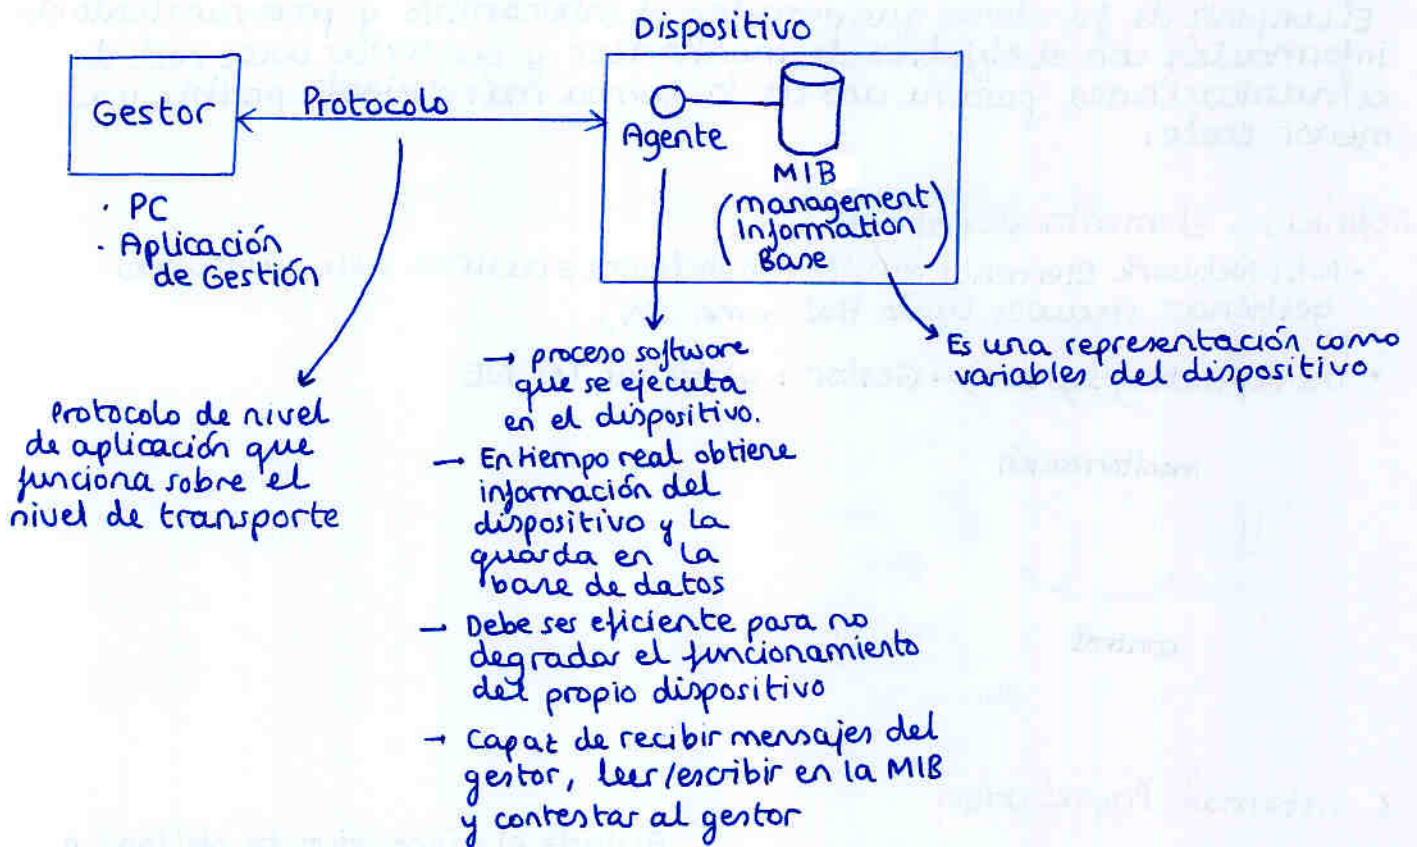 Dispositivo
Gestor
Protocolo
Agente
MIB
(management
Information
Base)
· PC
· Aplicación
de Gestión
Protocolo de nivel
de aplicación que
funciona sobre el
nivel de transporte
→ proceso software
que se ejecuta
en el dispositivo.
→ En tiempo real obtiene
información del
dispositivo y la
guarda en la
base de datos
→ Debe ser eficiente para no
degradar el funcionamiento
del propio dispositivo
→ Capaz de recibir mensajes del
gestor, leer/escribir en la MIB
y contestar al gestor
Es una representación como
variables del dispositivo